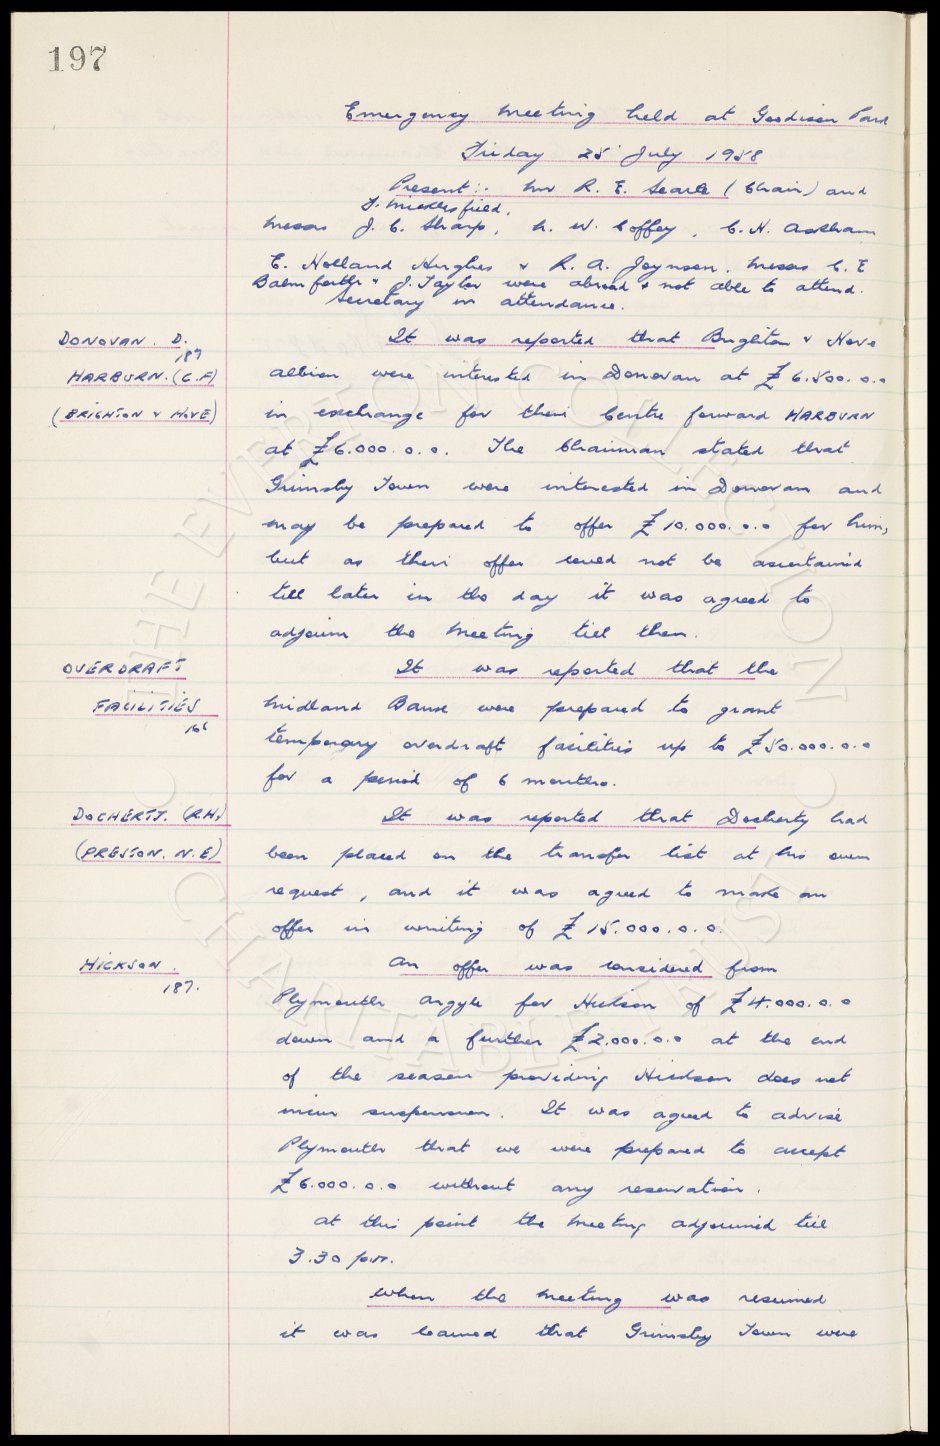 197
Emergency Meeting held at Goodison Park
Friday 25 July 1958
Present:- Mr R. E. Searle (Chair) and
F. Micklesfield,
Messrs J. C. Sharp, N. W. Coffey, C. H. Askham
E. Holland Hughes & R. A. Joynson. Messrs C. E
Balmforth & J. Taylor were abroad & not able to attend.
Secretary in attendance.
DONOVAN. D.
187
HARBURN. (C.F)
(BRIGHTON & HOVE)
It was reported that Brighton & Hove
Albion were interested in Donovan at £6.500.0.0
in exchange for their Centre forward HARBURN
at £6.000.0.0. The Chairman stated that
Grimsby Town were interested in Donovan and
may be prepared to offer £10.000.0.0 for him,
but as their offer could not be ascertained
till later in the day it was agreed to
adjourn the Meeting till then.
OVERDRAFT
FACILITIES
166
It was reported that the
Midland Bank were prepared to grant
temporary overdraft facilities up to £50.000.0.0
for a period of 6 months.
DOCHERTY. (R.H)
(PRESTON. N.E)
It was reported that Docherty had
been placed on the transfer list at his own
request, and it was agreed to make an
offer in writing of £15.000.0.0.
HICKSON.
187.
An offer was considered from
Plymouth Argyle for Hickson of £4.000.0.0
down and a further £2.000.0.0 at the end
of the season providing Hickson does not
incur suspension. It was agreed to advise
Plymouth that we were prepared to accept
£6.000.0.0 without any reservation.
At this point the Meeting adjourned till
3.30 p.m.
When the Meeting was resumed
it was learned that Grimsby Town were
THE EVERTON COLLECTION
CHARITABLE TRUST